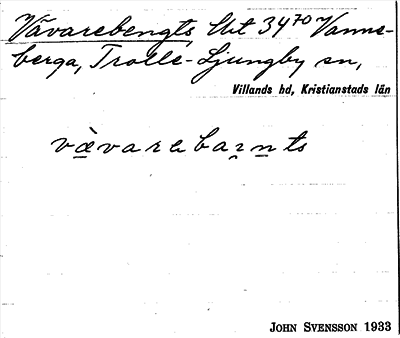 Vävarebengts, Ut 34⁷⁰ Vanne-
berga, Trolle-Ljungby sn,
Villands hd, Kristianstads län
vävarebants
JOHN SVENSSON 1933